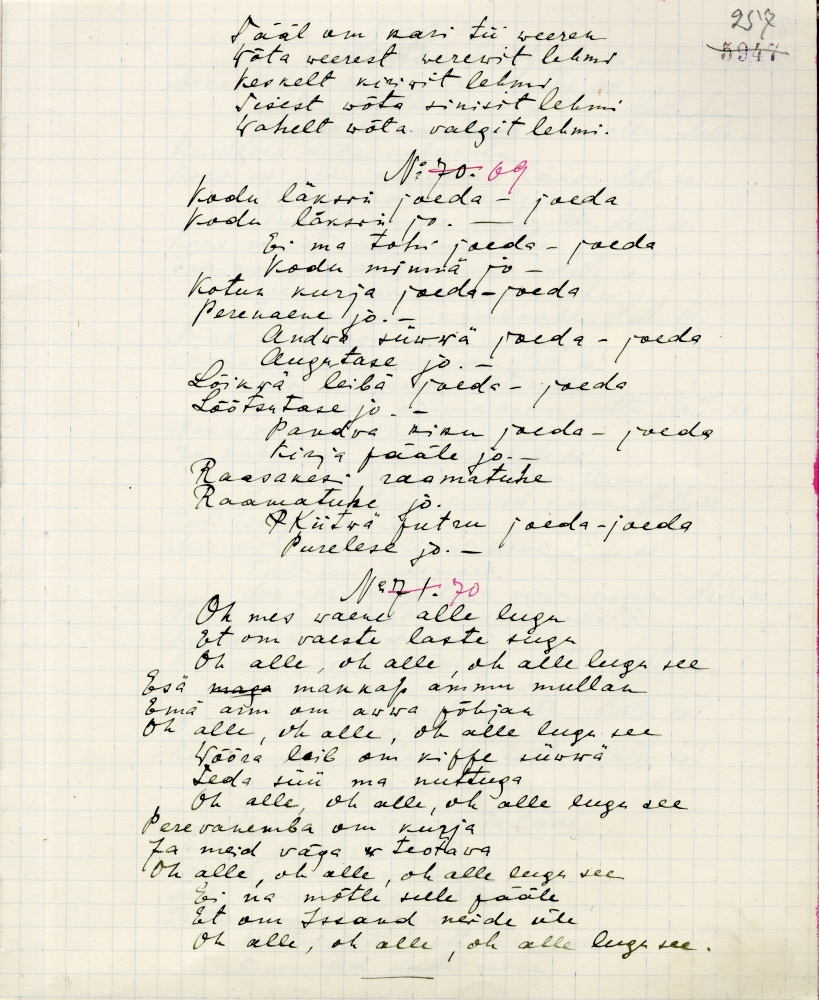 257
5947
Sääl om kari tii weeren
Wõta weerest werewit lehmi
Keskelt kirivit lehmi
Sisest wõta sinisit lehmi
Wahelt wõta valgit lehmi.
No 70. 69
Kodu läksin joeda - joeda
Kodu läksin jo. —
Ei ma tohi joeda - joeda
Kodu minnä jo —
Kotun kurja joeda - joeda
Perenaene jo. —
Andwa süwwä joeda - joeda
Augutase jo. —
Lõikwä leibä joeda - joeda
Lõõtsutase jo. —
Pandva kiku joeda - joeda
Kirja pääle jo. —
Raasakesi raamatuhe
Raamatuhe jo.
Kiitwä putru joeda - joeda
Purelese jo. —
No 71. 70
Oh mes waene alle lugu
Et om vaeste laste sugu
Oh alle, oh alle, oh alle lugu see
Esä maga makkap ammu mullan
Emä arm om awwa põhjan
Oh alle, oh alle, oh alle lugu see
Wõõra leib om kippe süwwä
Seda süü ma nuttuga
Oh alle, oh alle, oh alle lugu see
Perevanemba om kurja
Ja meid väga teotava
Oh alle, oh alle, oh alle lugu see
Ei na mõtle selle pääle
Et om Issand neide üle
Oh alle, oh alle, oh alle lugu see.